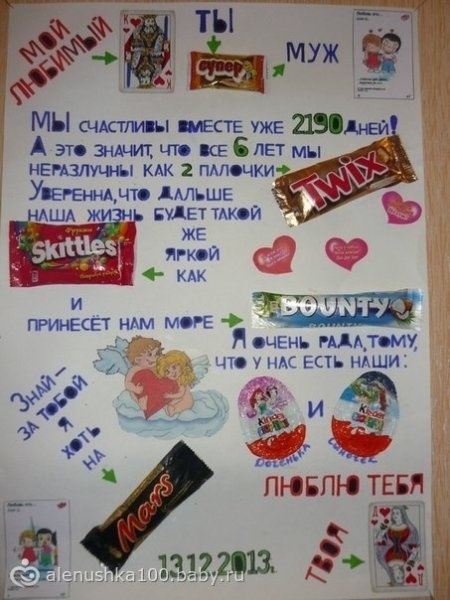 МОЙ ЛЮБИМЫЙ
K
ТЫ
супер
МУЖ
Любовь это...
МЫ СЧАСТЛИВЫ ВМЕСТЕ УЖЕ 2190 ДНЕЙ!
А ЭТО ЗНАЧИТ, ЧТО ВСЕ 6 ЛЕТ МЫ
НЕРАЗЛУЧНЫ КАК 2 ПАЛОЧКИ
Twix
УВЕРЕННА, ЧТО ДАЛЬШЕ
НАША ЖИЗНЬ БУДЕТ ТАКОЙ
ЖЕ
ЯРКОЙ
КАК
Фрукты
Skittles
И
ПРИНЕСЁТ НАМ МОРЕ
BOUNTY
Я ОЧЕНЬ РАДА, ТОМУ,
ЧТО У НАС ЕСТЬ НАШИ:
Kinder
СЮРПРИЗ
Доченька
И
Kinder
СЮРПРИЗ
Сыночек
ЗНАЙ –
ЗА ТОБОЙ
Я
ХОТЬ
НА
Mars
ЛЮБЛЮ ТЕБЯ
ТВОЯ
Любовь это...
13.12.2013г.
alenushka100.baby.ru